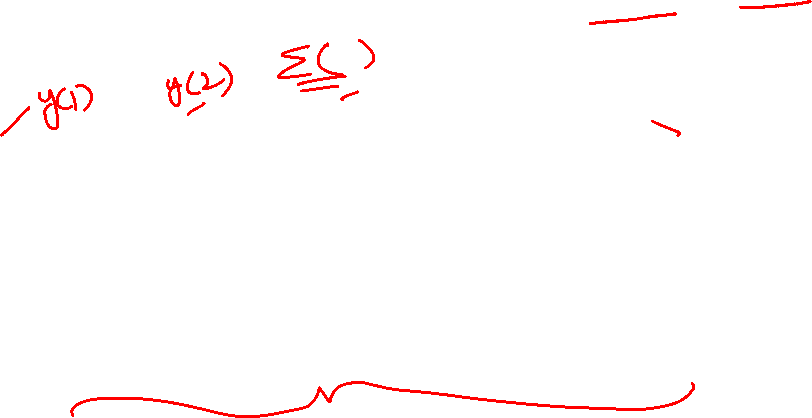 y(1) y(2) Σ( )